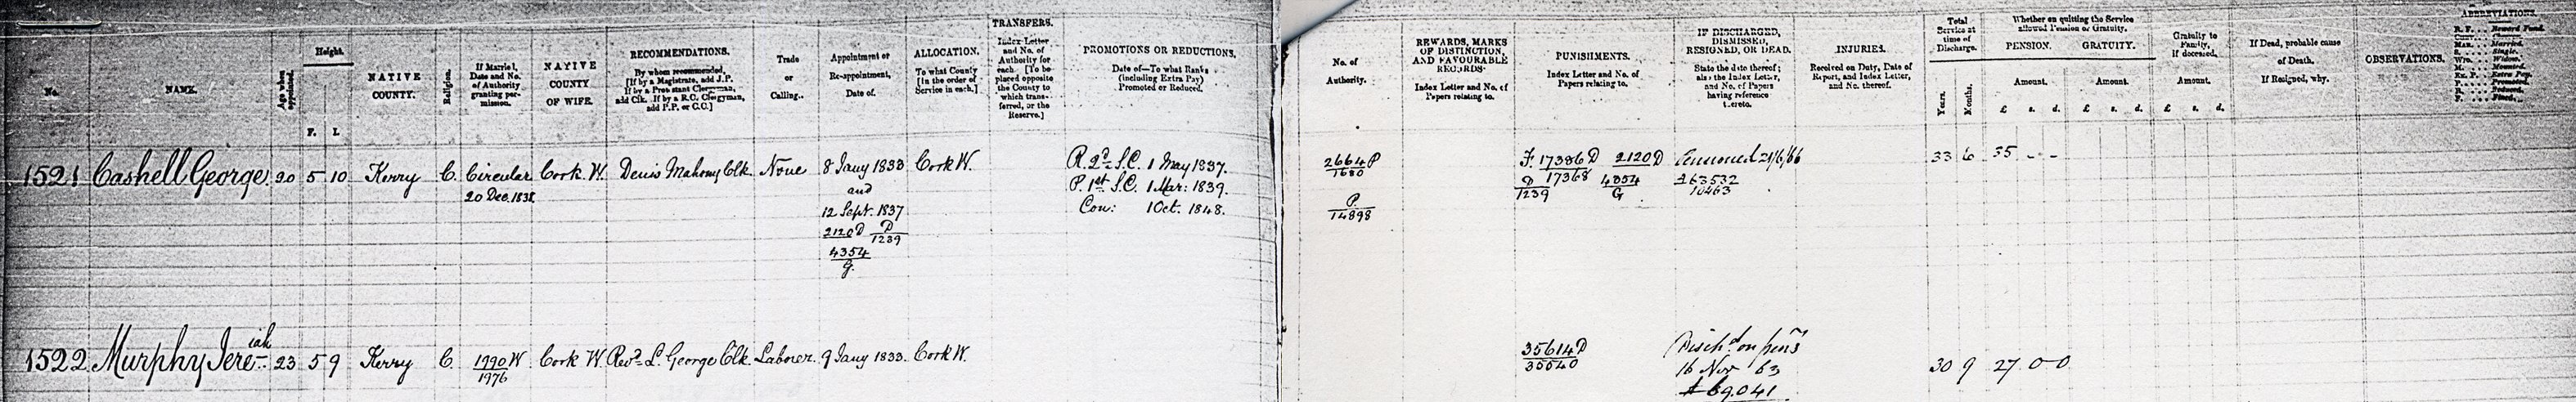 No.
NAME.
Age when appointed.
Height.
F. I.
NATIVE
COUNTY.
Religion.
If Married,
Date and No.
of Authority
granting per-
mission.
NATIVE
COUNTY
OF WIFE.
RECOMMENDATIONS.
By whom recommended,
[If by a Magistrate, add J.P.
If by a Protestant Clergyman,
add Clk. If by a R.C. Clergyman,
add P.P. or C.C.]
Trade
or
Calling.
Appointment or
Re-appointment,
Date of.
ALLOCATION.
To what County
[In the order of
Service in each.]
TRANSFERS.
Index Letter
and No. of
Authority for
each. [To be
placed opposite
the County to
which trans-
ferred, or the
Reserve.]
PROMOTIONS OR REDUCTIONS.
Date of—To what Ranks
(including Extra Pay)
Promoted or Reduced.
No. of
Authority.
REWARDS, MARKS
OF DISTINCTION,
AND FAVOURABLE
RECORDS.
Index Letter and No. of
Papers relating to.
PUNISHMENTS.
Index Letter and No. of
Papers relating to.
IF DISCHARGED,
DISMISSED,
RESIGNED, OR DEAD.
State the date thereof;
also the Index Letter,
and No. of Papers
having reference
thereto.
INJURIES.
Received on Duty, Date of
Report, and Index Letter,
and No. thereof.
Total
Service at
time of
Discharge.
Years. Months.
Whether on quitting the Service
allowed Pension or Gratuity.
PENSION. GRATUITY.
Amount. Amount.
£ s. d. £ s. d.
Gratuity to
Family,
if deceased.
Amount.
£ s. d.
If Dead, probable cause
of Death.
If Resigned, why.
OBSERVATIONS.
ABBREVIATIONS.
R. F. . . . Reward Fund.
Mar. . . . Married.
S. . . . Single.
Wid. . . . Widow.
M. . . . Mounted.
Ex. P. . . . Extra Pay.
P. . . . Promoted.
R. . . . Reduced.
F. . . . Fined.
1521 Cashell George. 20 5 10 Kerry C. Circular Cork W. Denis Mahony Clk. None 8 Jany 1833 Cork W. R. 2d S.C. 1 May 1837. 2664 P F 17386 D 2120 D Pensioned 21/6/66 33 6 35 - -
20 Dec. 1838 and P. 1st S.C. 1 Mar: 1839. 1680 D 17368 4354 10463
12 Sept. 1837 Con: 1 Oct. 1848. P 1239 G
2120 D P 14898
1239
4354
G.
1522 Murphy Jere-iah 23 5 9 Kerry C. 1990 W Cork W. Revd L. George Clk. Laborer. 9 Jany 1833. Cork W. 35614 D Dischd on pens 30 9 27. 0 0
1976 35540 16 Nov 63